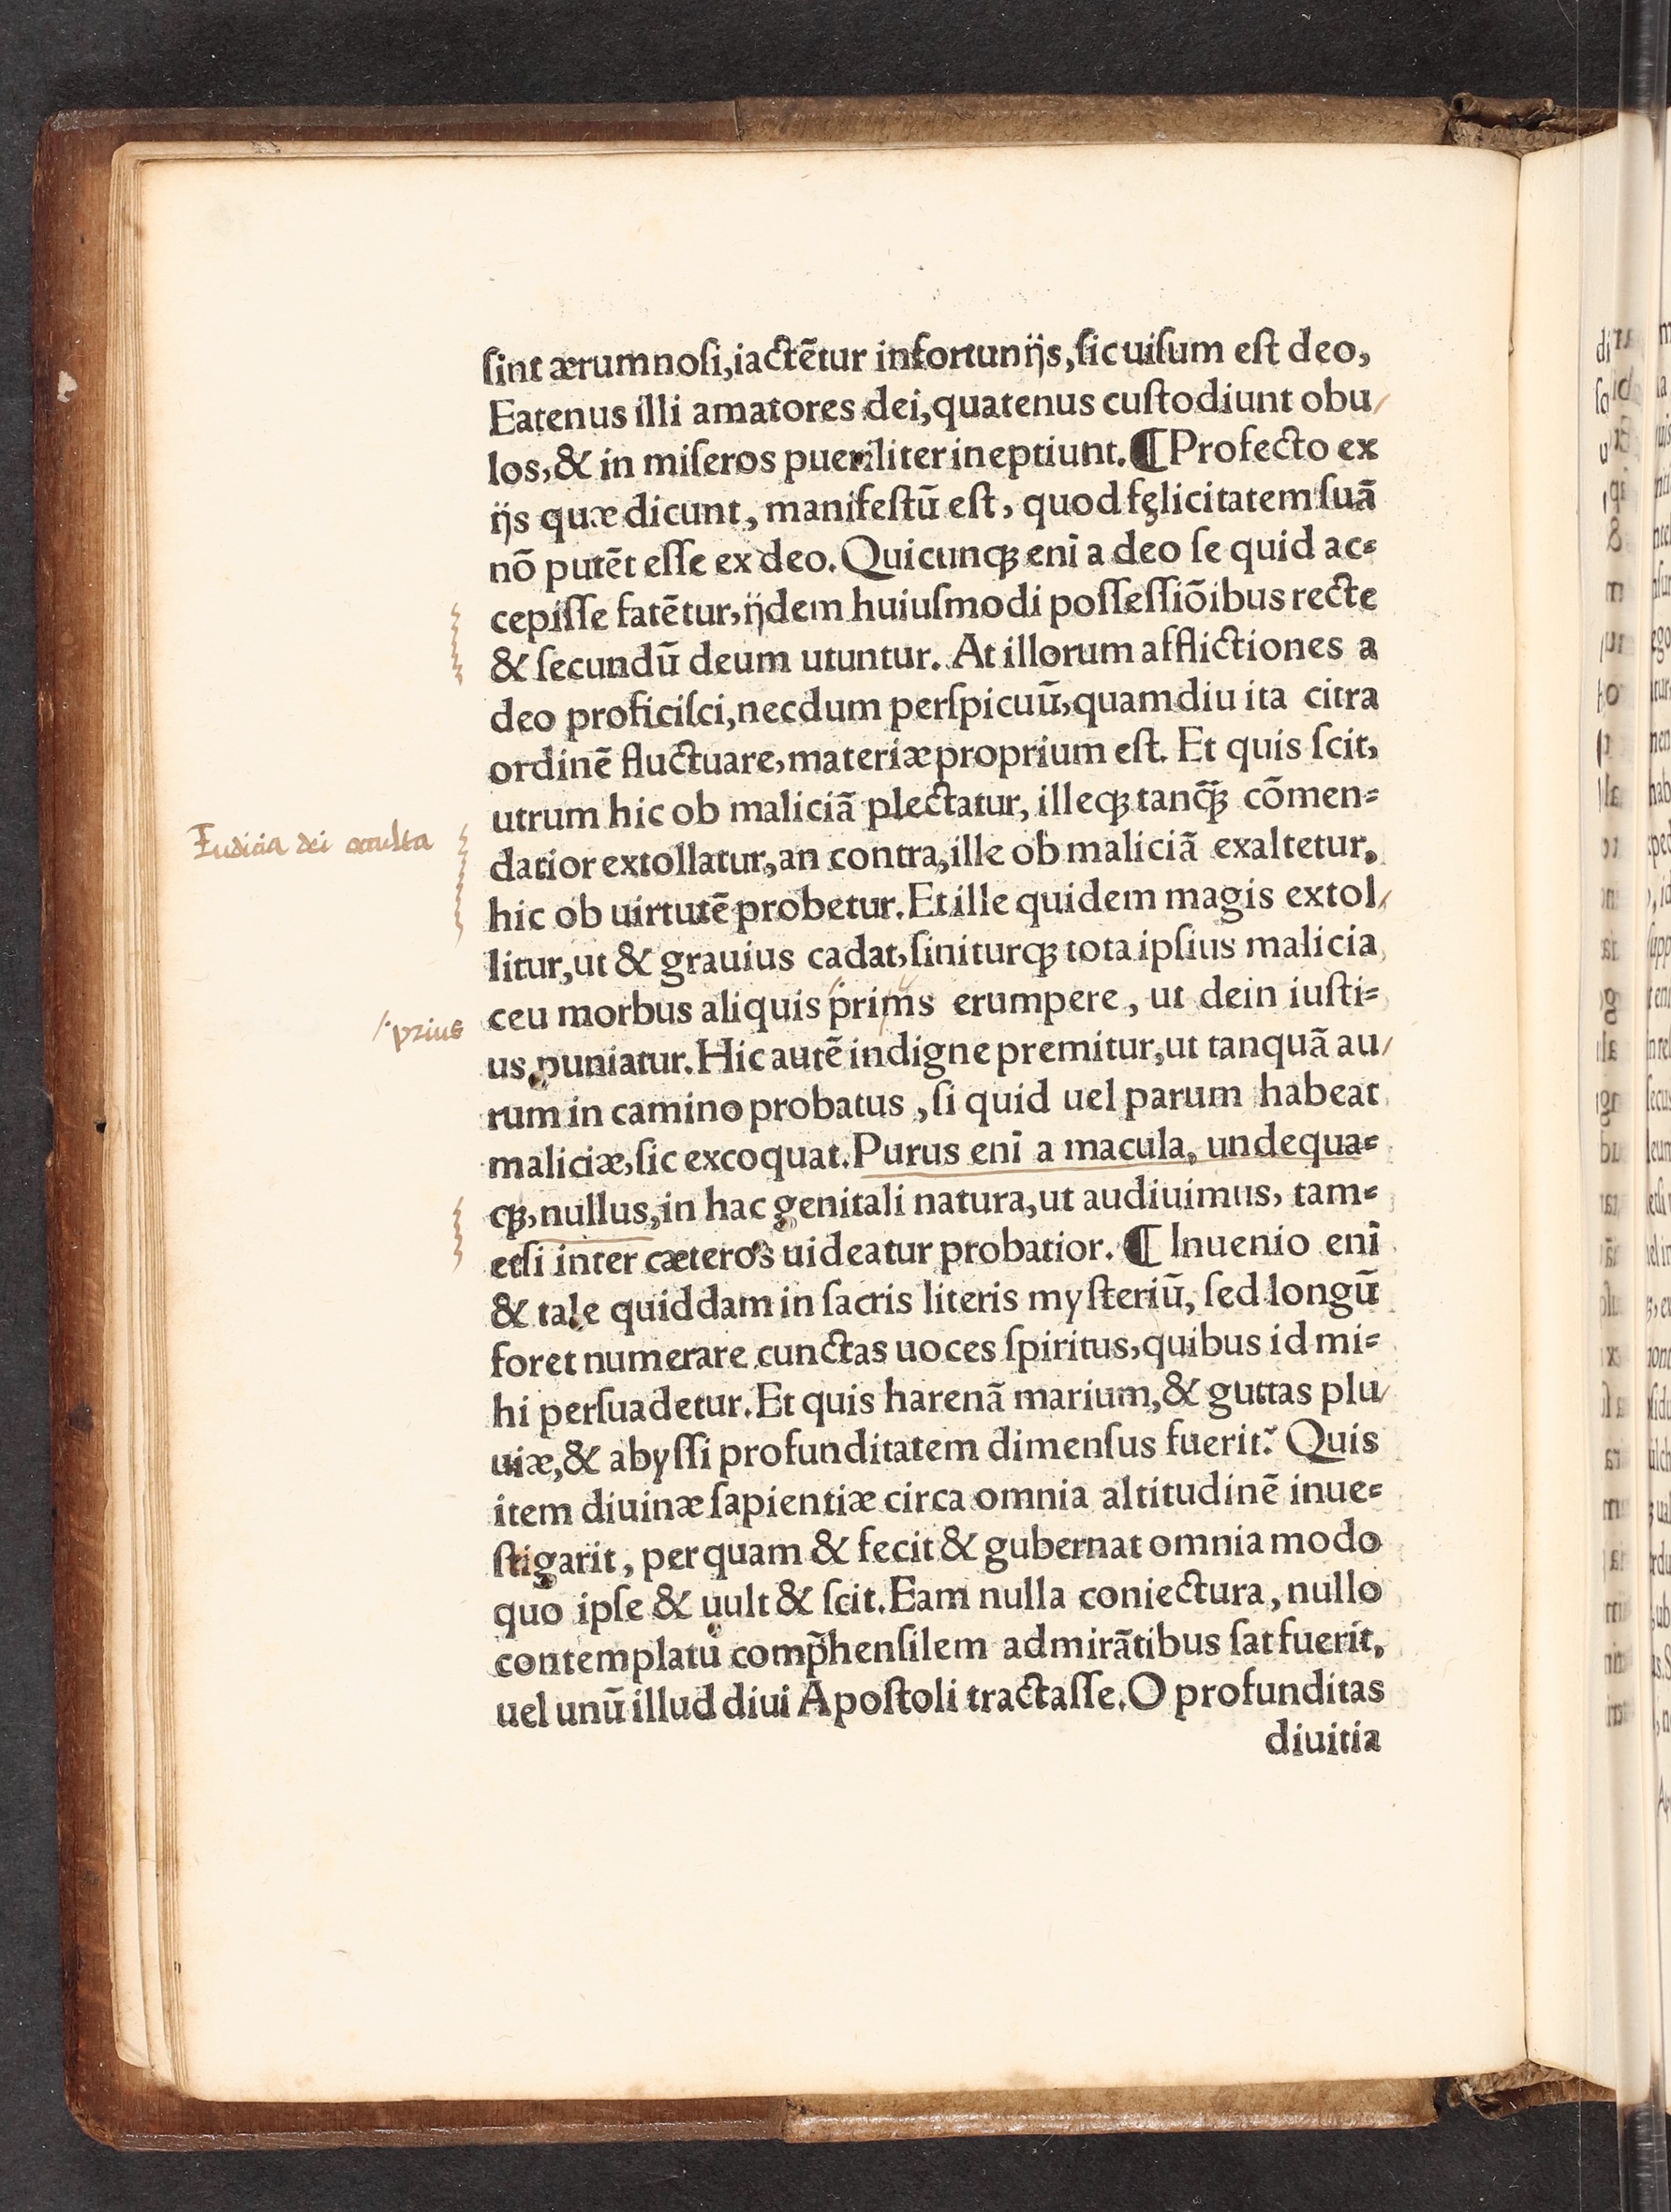 ſint ærumnoſi,iactētur infortunijs,ſic uiſum eſt deo,
Eatenus illi amatores dei,quatenus cuſtodiunt obu/
los,& in miſeros pueriliter ineptiunt.¶ Profecto ex
ijs quæ dicunt, manifeſtū eſt, quod fęlicitatem ſuā
nō putēt eſſe ex deo. Quicunqꝫ enī a deo ſe quid ac⸗
cepiſſe fatētur,ijdem huiuſmodi poſſeſſiōibus recte
& ſecundū deum utuntur. At illorum afflictiones a
deo proficiſci,necdum perſpicuū,quamdiu ita citra
ordinē fluctuare,materiæ proprium eſt. Et quis ſcit,
utrum hic ob maliciā plectatur, illeqꝫ tanq̄ꝫ cōmen⸗
Iudicia dei occulta
datior extollatur,an contra,ille ob maliciā exaltetur,
hic ob uirtutē probetur. Et ille quidem magis extol/
litur,ut & grauius cadat,ſiniturqꝫ tota ipſius malicia
ceu morbus aliquis prims erumpere, ut dein iuſti⸗
/· prius
us puniatur. Hic autē indigne premitur,ut tanquā au/
rum in camino probatus ,ſi quid uel parum habeat
maliciæ,ſic excoquat. Purus enī a macula, undequa⸗
qꝫ,nullus,in hac genitali natura,ut audiuimus, tam⸗
etſi inter cæteros uideatur probatior. ¶ Inuenio enī
& tale quiddam in ſacris literis myſteriū, ſed longū
foret numerare cunctas uoces ſpiritus,quibus id mi⸗
hi perſuadetur. Et quis harenā marium,& guttas plu/
uiæ,& abyſſi profunditatem dimenſus fuerit? Quis
item diuinæ ſapientiæ circa omnia altitudinē inue⸗
ſtigarit, per quam & fecit & gubernat omnia modo
quo ipſe & uult & ſcit. Eam nulla coniectura, nullo
contemplatu comp̄henſilem admirātibus ſat fuerit,
uel unū illud diui Apoſtoli tractaſſe. O profunditas
diuitia